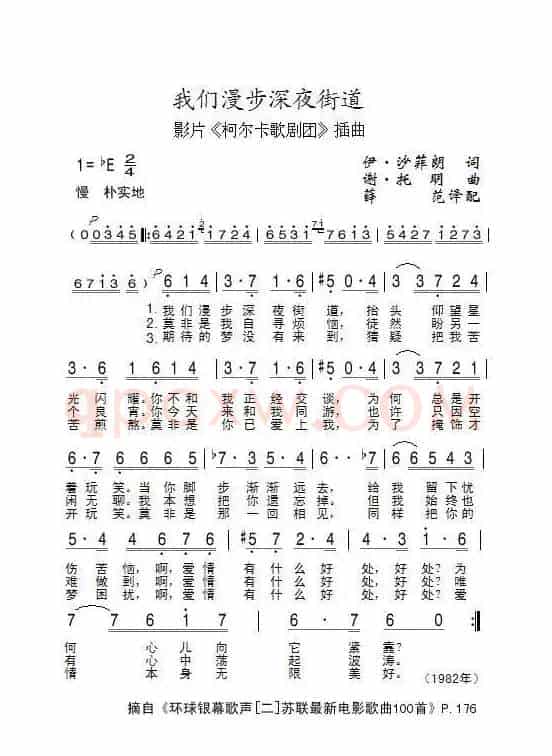 我们漫步深夜街道
影片《柯尔卡歌剧团》插曲
1=♭E 2/4
伊·沙菲朗 词
谢·托明 曲
薛 范译配
慢 朴实地
(00345 ‖: 6421 1724 6543 7613 5427 1273
6713 6) 6 1 4 3·7 6·1 #5 0 4 3 3724
1.我们漫步深夜街道，抬头仰望星
2.莫非是我自寻烦恼，徒然盼另一
3.期待的梦没有来到，猜疑把我苦
3·6 6 1 4 3·7 6·1 #5·4 3 3724
光闪耀。你不和我正经交谈，为何总是开
个良宵。你今天来和我同游，也许只因空
苦煎熬。莫非是你已爱上我，为了掩饰才
着玩笑。当你脚步渐渐远去，给我留下忧
闲无聊。我本想把你遗忘掉。但我始终也
开玩笑。莫非是那一回相见，同样把你的
5·4 4 3 1 6 #5 7 2·4 4·3 3 1
伤苦恼，啊，爱情有什么好处，好处？为
难做到，啊，爱情有什么好处，好处？唯
梦困扰，啊，爱情有什么好处，好处？爱
7 7 6 1 7 7 6 7 6 0 :‖
何心儿向它紧靠？
有心中荡起波涛。
情本无限美好。
（1982年）
qpsxw.com
摘自《环球银幕歌声[二]苏联最新电影歌曲100首》P.176